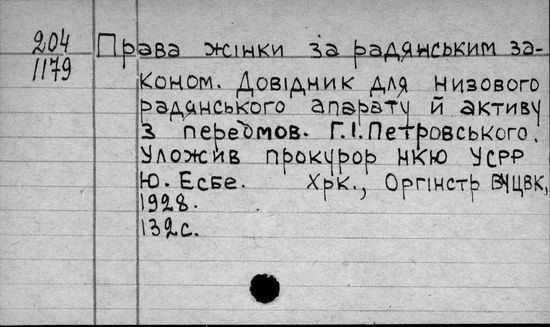 204
1179
Права жінки за радянським за-
коном. Довідник для низового
радянського апарату й активу
з передмов. Г.І.Петровського.
Уложив прокурор НКЮ УСРР
Ю. Есбе. Хрк., Оргінстр ВУЦВК,
1928.
132с.